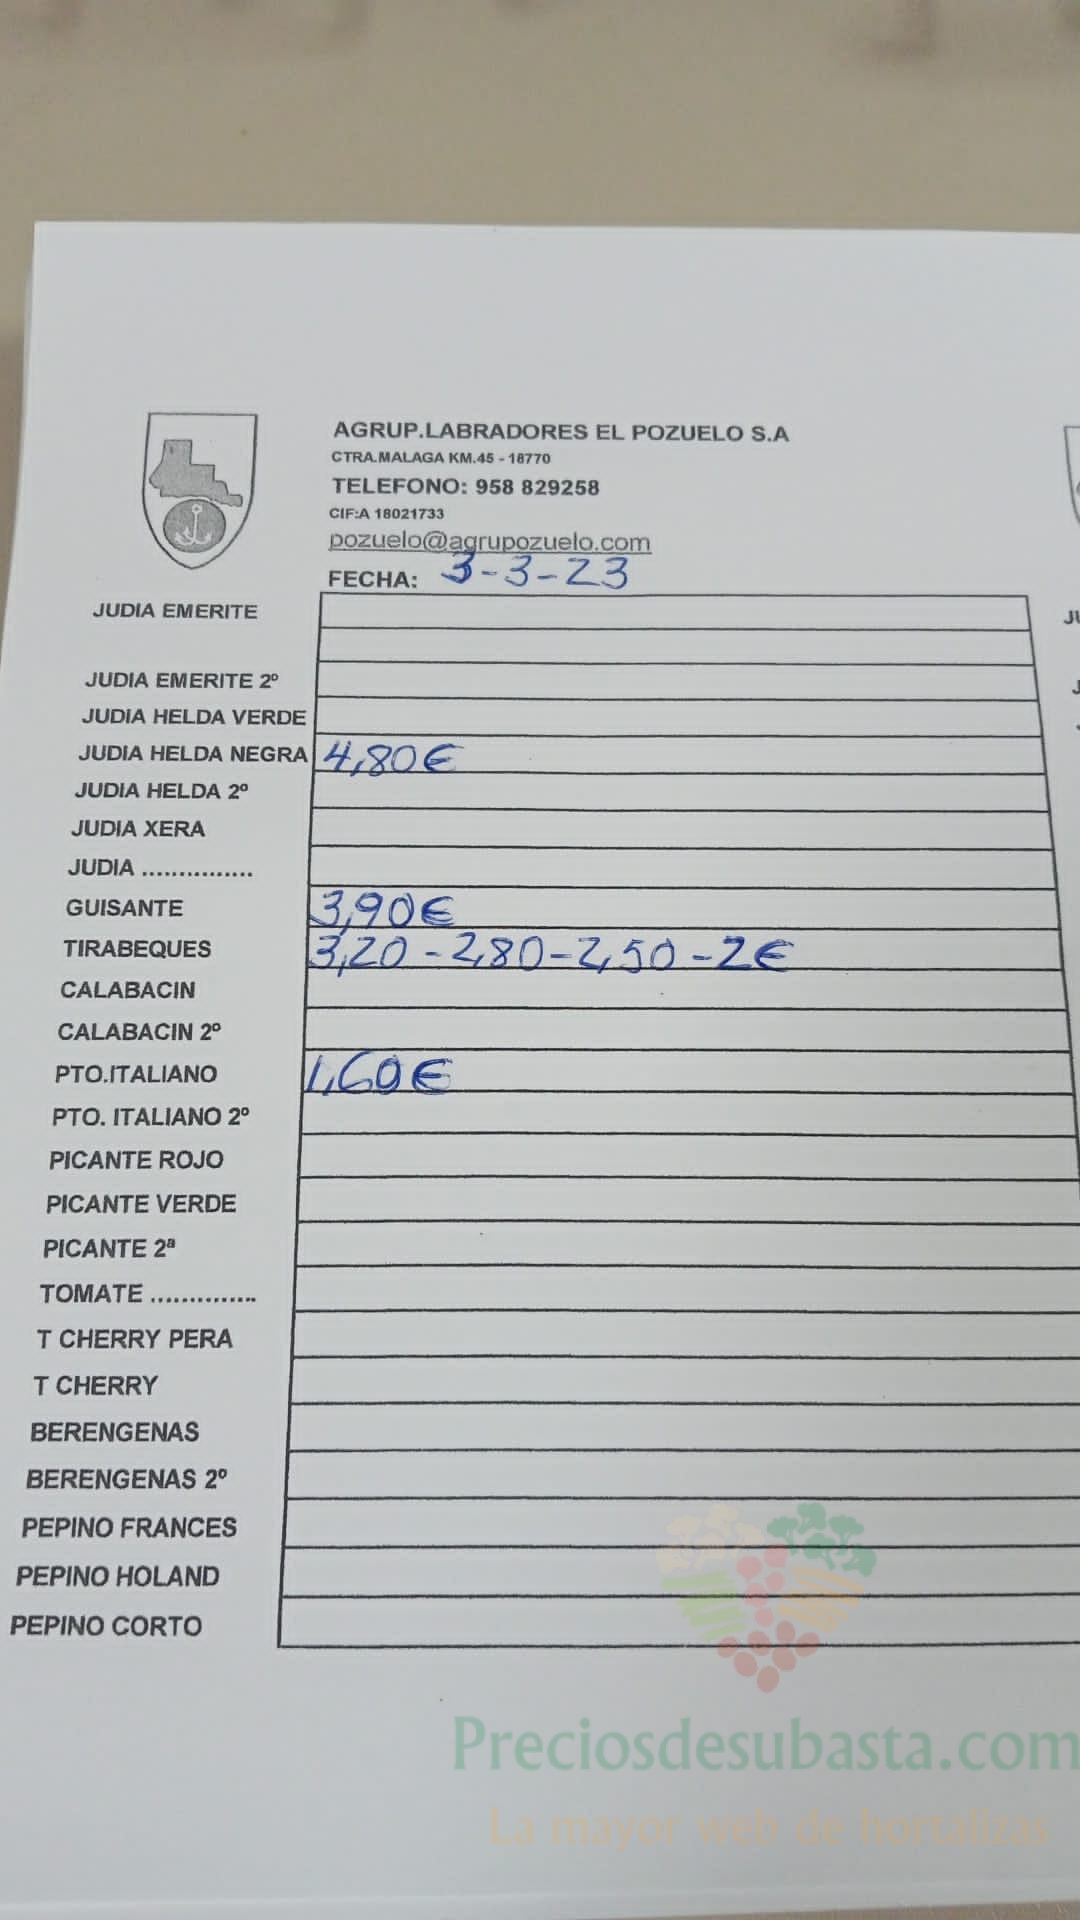 AGRUP.LABRADORES EL POZUELO S.A
CTRA.MALAGA KM.45 - 18770
TELEFONO: 958 829258
CIF:A 18021733
pozuelo@agrupozuelo.com
FECHA: 3-3-23
JUDIA EMERITE
JUDIA EMERITE 2º
JUDIA HELDA VERDE
JUDIA HELDA NEGRA 4,80€
JUDIA HELDA 2º
JUDIA XERA
JUDIA ...............
GUISANTE 3,90€
TIRABEQUES 3,20 - 2,80 - 2,50 - 2€
CALABACIN
CALABACIN 2º
PTO.ITALIANO 1,60€
PTO. ITALIANO 2º
PICANTE ROJO
PICANTE VERDE
PICANTE 2ª
TOMATE ..............
T CHERRY PERA
T CHERRY
BERENGENAS
BERENGENAS 2º
PEPINO FRANCES
PEPINO HOLAND
PEPINO CORTO
Preciosdesubasta.com
La mayor web de hortalizas